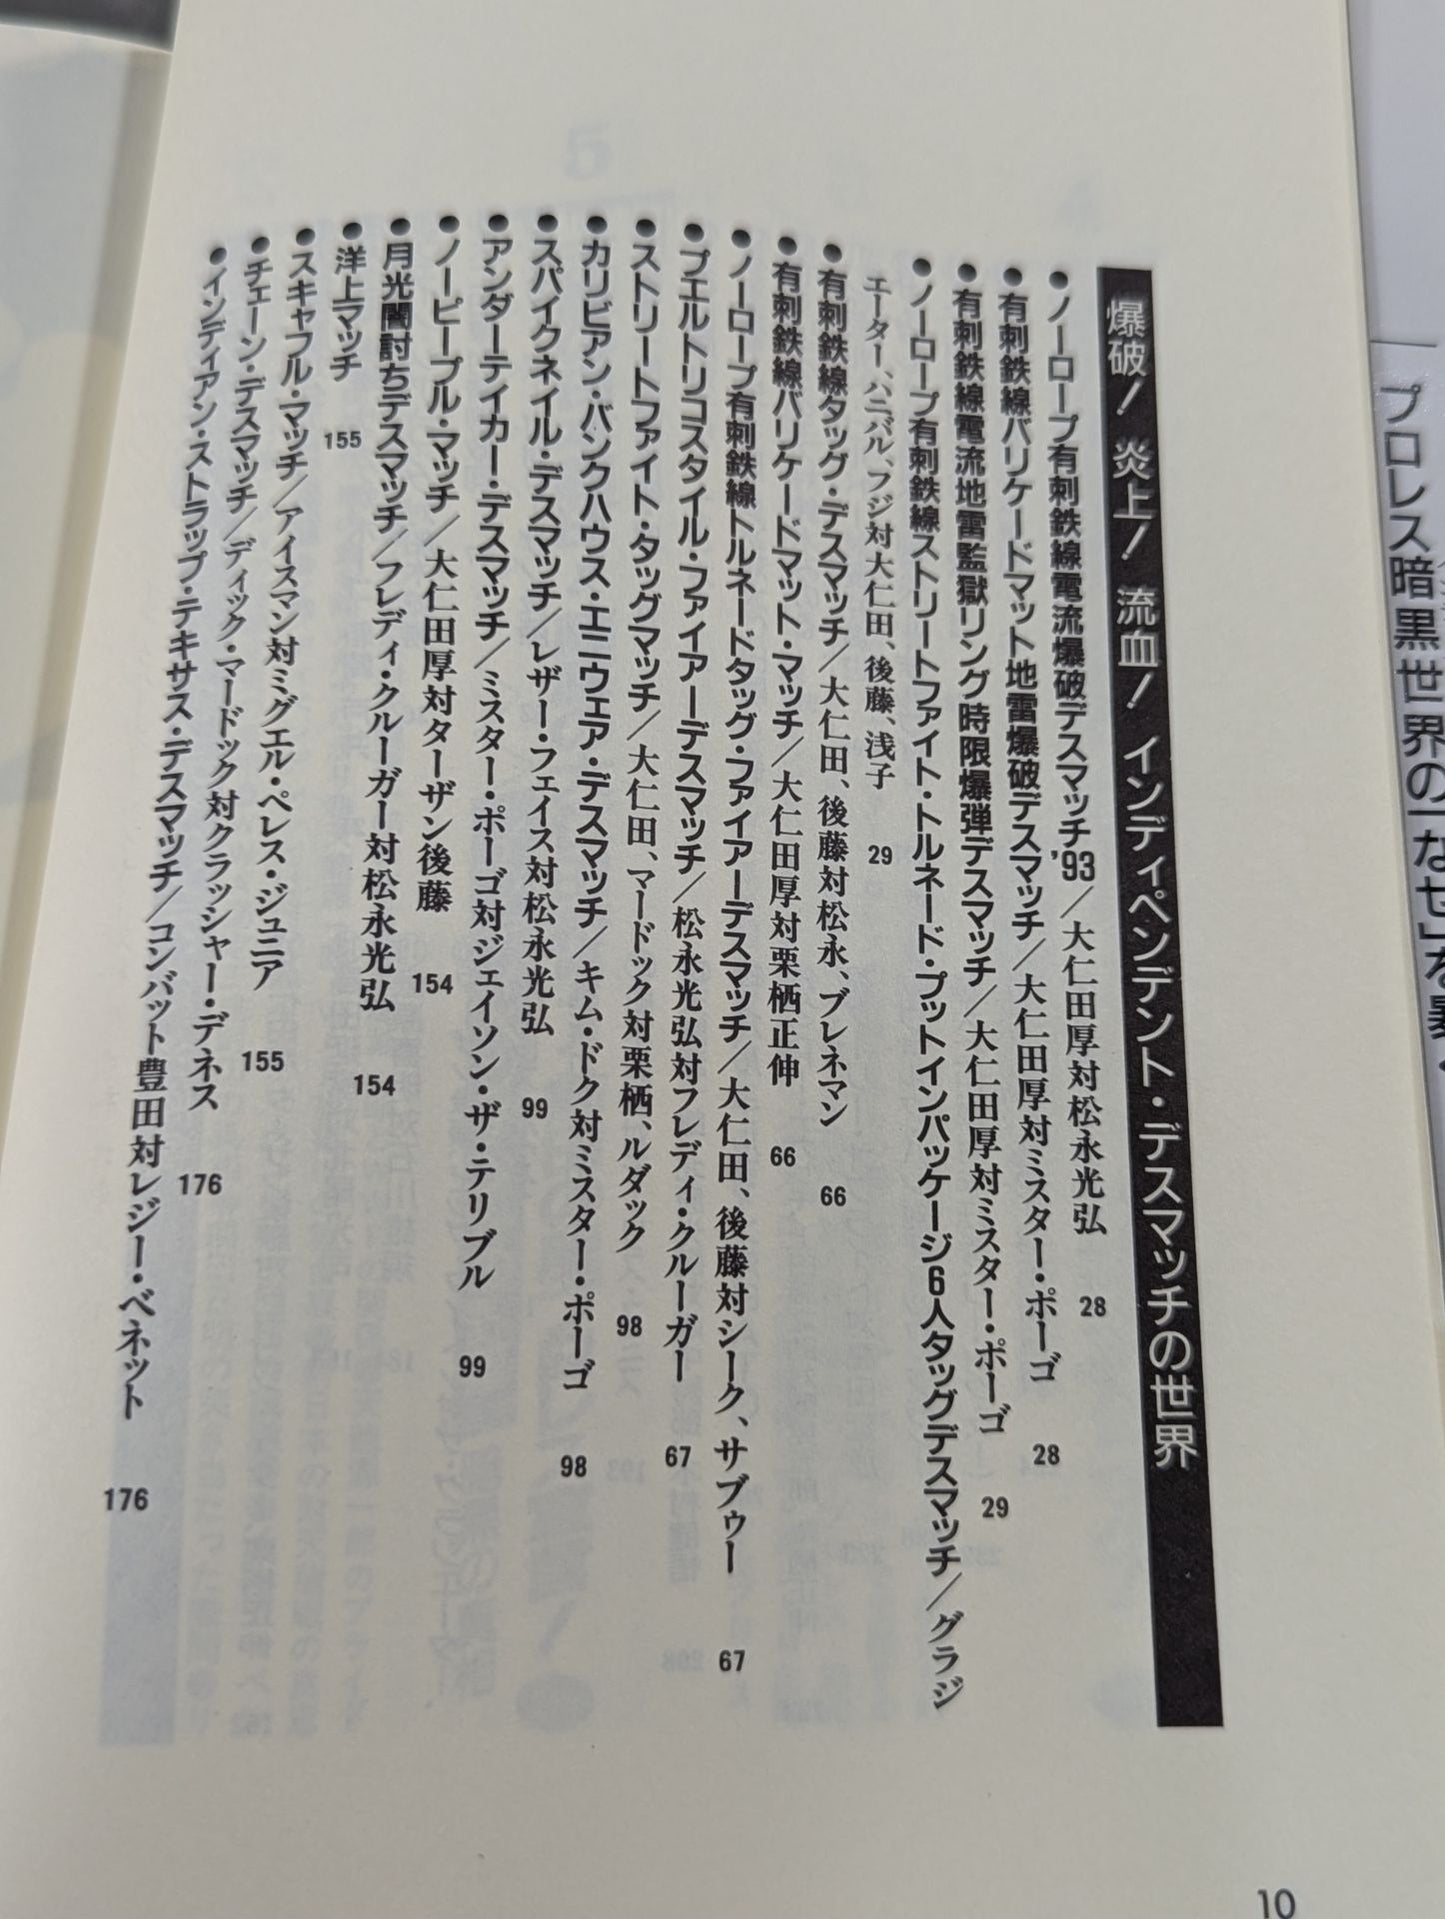 爆破! 炎上! 流血! インディペンデント・デスマッチの世界
●ノーロープ有刺鉄線電流爆破デスマッチ'93/大仁田厚対松永光弘 28
●有刺鉄線バリケードマット地雷爆破デスマッチ/大仁田厚対ミスター・ポーゴ 28
●有刺鉄線電流地雷監獄リング時限爆弾デスマッチ/大仁田厚対ミスター・ポーゴ 29
●ノーロープ有刺鉄線ストリートファイト・トルネード・プットインパッケージ6人タッグデスマッチ/グラジ
エーター、ハニバル、フジ対大仁田、後藤、浅子 29
●有刺鉄線タッグ・デスマッチ/大仁田、後藤対松永、ブレネマン 66
●有刺鉄線バリケードマット・マッチ/大仁田厚対栗栖正伸 66
●ノーロープ有刺鉄線トルネードタッグ・ファイアーデスマッチ/大仁田、後藤対シーク、サブゥー 67
●プエルトリコスタイル・ファイアーデスマッチ/松永光弘対フレディ・クルーガー 67
●ストリートファイト・タッグマッチ/大仁田、マードック対栗栖、ルダック 98
●カリビアン・バンクハウス・エニウェア・デスマッチ/キム・ドク対ミスター・ポーゴ 98
●スパイクネイル・デスマッチ/レザー・フェイス対松永光弘 99
●アンダーテイカー・デスマッチ/ミスター・ポーゴ対ジェイソン・ザ・テリブル 99
●ノーピープル・マッチ/大仁田厚対ターザン後藤 154
●月光闇討ちデスマッチ/フレディ・クルーガー対松永光弘 154
●洋上マッチ 155
●スキャフル・マッチ/アイスマン対ミグエル・ペレス・ジュニア 155
●チェーン・デスマッチ/ディック・マードック対クラッシャー・デネス 176
●インディアン・ストラップ・テキサス・デスマッチ/コンバット豊田対レジー・ベネット 176
10
プロレス暗黒世界の「なぜ」を暴く